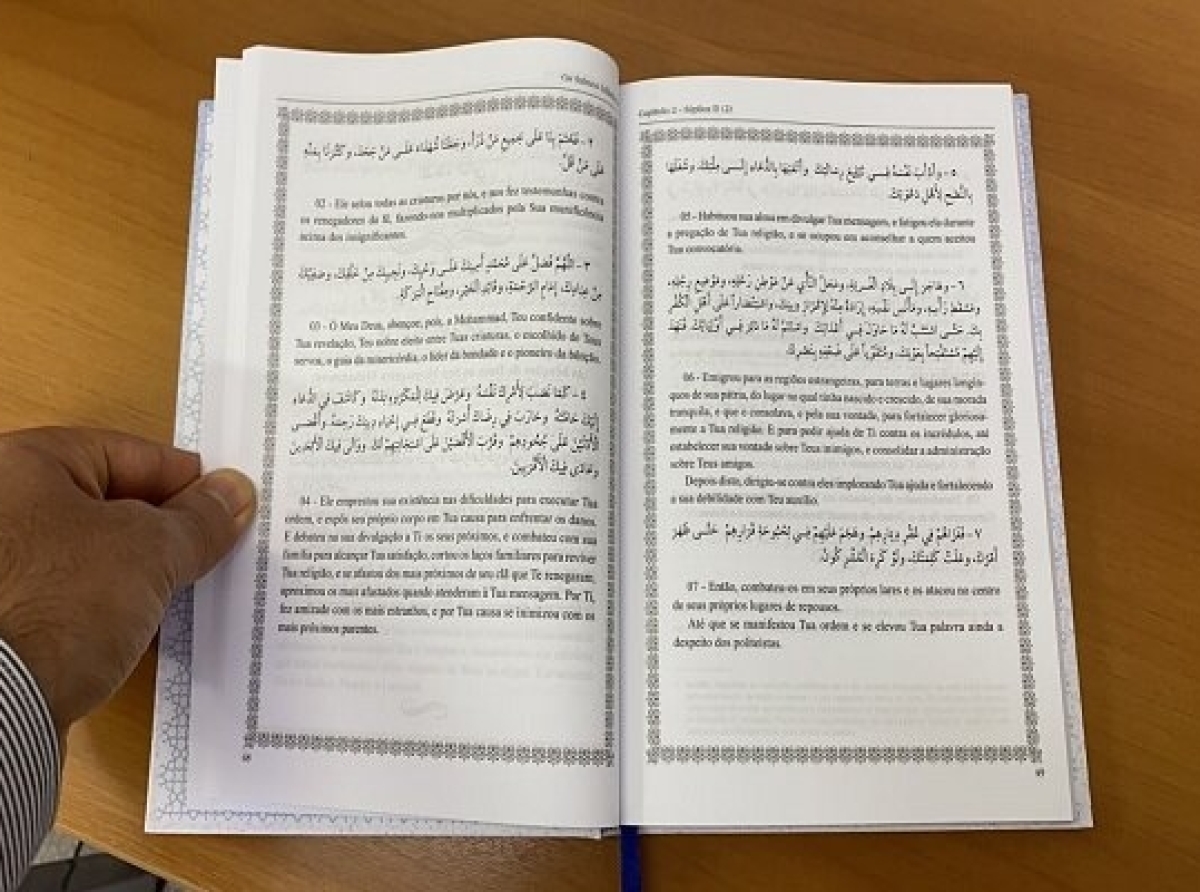 Os Salmos
٢ - فَخَتَمَ بِنَا عَلَى جَمِيعِ مَنْ ذَرَأَ، وَجَعَلَنَا شُهَدَاءَ عَلَى مَنْ جَحَدَ، وَكَثَّرَنَا بِمَنِّهِ
عَلَى مَنْ قَلَّ.
02 - Ele selou todas as criaturas por nós, e nos fez testemunhas contra
os renegadores da fé, fazendo-nos multiplicados pela Sua munificência
acima dos insignificantes.
٣ - اللَّهُمَّ فَصَلِّ عَلَى مُحَمَّدٍ أَمِينِكَ عَلَى وَحْيِكَ، وَنَجِيبِكَ مِنْ خَلْقِكَ، وَصَفِيِّكَ
مِنْ عِبَادِكَ، إِمَامِ الرَّحْمَةِ، وَقَائِدِ الْخَيْرِ، وَمِفْتَاحِ الْبَرَكَةِ.
03 - Ó Meu Deus, abençoe, pois, a Mohammad, Teu confidente sobre
Tua revelação, Teu nobre eleito entre Tuas criaturas, o escolhido de Teus
servos, o guia da misericórdia, o líder da bondade e o pioneiro da bênção.
٤ - كَمَا نَصَبَ لِأَمْرِكَ نَفْسَهُ وَعَرَّضَ فِيكَ لِلْمَكْرُوهِ بَدَنَهُ وَكَاشَفَ فِي الدُّعَاءِ
إِلَيْكَ حَامَّتَهُ وَحَارَبَ فِي رِضَاكَ أُسْرَتَهُ وَقَطَعَ فِي إِحْيَاءِ دِينِكَ رَحِمَهُ وَأَقْصَى
الْأَدْنَيْنَ عَلَى جُحُودِهِمْ وَقَرَّبَ الْأَقْصَيْنَ عَلَى اسْتِجَابَتِهِمْ لَكَ وَوَالَى فِيكَ الْأَبْعَدِينَ
وَعَادَى فِيكَ الْأَقْرَبِينَ.
04 - Ele emprestou sua existência nas dificuldades para executar Tua
ordem, e expôs seu próprio corpo em Tua causa para enfrentar os danos.
E debateu na sua divulgação a Ti os seus próximos, e combateu com sua
família para alcançar Tua satisfação, cortou os laços familiares para reviver
Tua religião, e se afastou dos mais próximos de seu clã que Te renegaram,
aproximou os mais afastados quando atenderam à Tua mensagem. Por Ti,
fez amizade com os mais estranhos, e por Tua causa se inimizou com os
mais próximos parentes.
Capítulo 2 - Súplica II (2)
٥ - وَأَدْأَبَ نَفْسَهُ فِي تَبْلِيغِ رِسَالَتِكَ وَأَتْعَبَهَا بِالدُّعَاءِ إِلَى مِلَّتِكَ، وَشَغَلَهَا
بِالنُّصْحِ لِأَهْلِ دَعْوَتِكَ.
05 - Habituou sua alma em divulgar Tua mensagem, e fatigou ela durante
a pregação de Tua religião, e se ocupou em aconselhar a quem aceitou
Tua convocatória.
٦ - وَهَاجَرَ إِلَى بِلَادِ الْغُرْبَةِ، وَمَحَلِّ النَّأْيِ عَنْ مَوْطِنِ رَحْلِهِ، وَمَوْضِعِ رِجْلِهِ،
وَمَسْقَطِ رَأْسِهِ، وَمَأْنَسِ نَفْسِهِ، إِرَادَةً مِنْهُ لِإِعْزَازِ دِينِكَ، وَاسْتِنْصَاراً عَلَى أَهْلِ الْكُفْرِ
بِكَ، حَتَّى اسْتَتَبَّ لَهُ مَا حَاوَلَ فِي أَعْدَائِكَ، وَاسْتَتَمَّ لَهُ مَا دَبَّرَ فِي أَوْلِيَائِكَ، فَنَهَدَ
إِلَيْهِمْ مُسْتَفْتِحاً بِعَوْنِكَ، وَمُتَقَوِّياً عَلَى ضَعْفِهِ بِنَصْرِكَ.
06 - Emigrou para as regiões estrangeiras, para terras e lugares longín-
quos de sua pátria, do lugar no qual tinha nascido e crescido, de sua morada
tranquila, é que o consolava, e pela sua vontade, para fortalecer gloriosa-
mente a Tua religião. E para pedir ajuda de Ti contra os incrédulos, até
estabelecer sua vontade sobre Teus inimigos, e consolidar a administração
sobre Teus amigos.
Depois disto, dirigiu-se contra eles implorando Tua ajuda e fortalecendo
a sua debilidade com Teu auxílio.
٧ - فَغَزَاهُمْ فِي عُقْرِ دِيَارِهِمْ وَهَجَمَ عَلَيْهِمْ فِي بُحْبُوحَةِ قَرَارِهِمْ حَتَّى ظَهَرَ
أَمْرُكَ، وَعَلَتْ كَلِمَتُكَ، وَلَوْ كَرِهَ الْمُشْرِكُونَ.
07 - Então, combateu-os em seus próprios lares e os atacou no centro
de seus próprios lugares de repouso.
Até que se manifestou Tua ordem e se elevou Tua palavra ainda a
despeito dos politeístas.